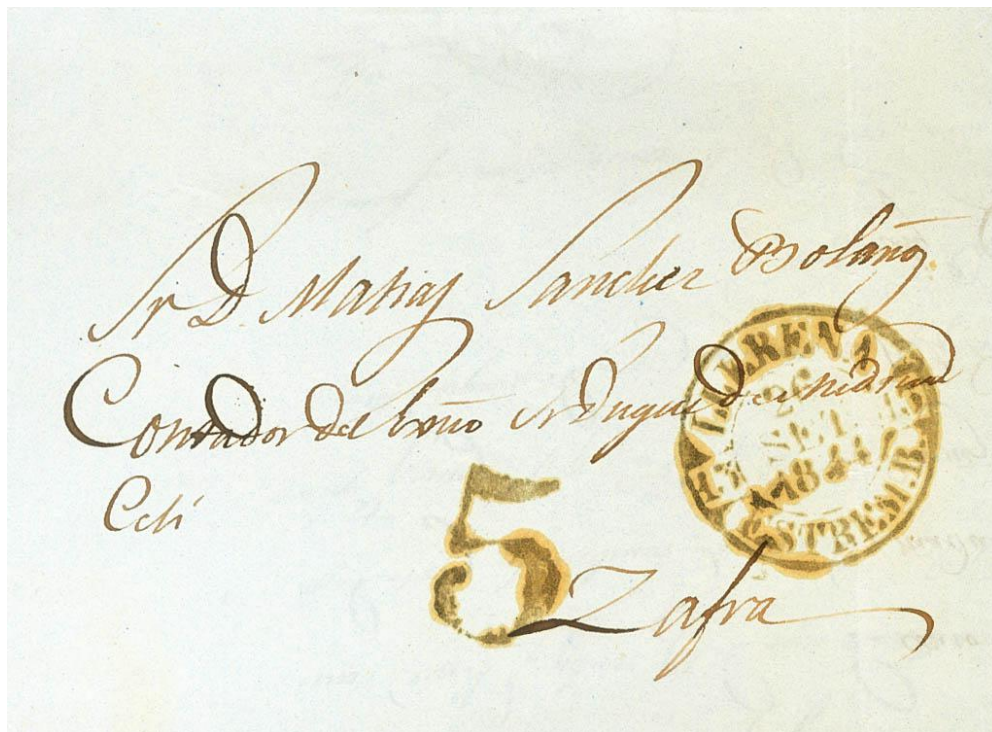 Sr D Matias Sanchez Bolaños
Contador del Exmo Sr Duque de Medina
Celi
LLERENA
26
SET
1844
ESTREM.B.
5
Zafra